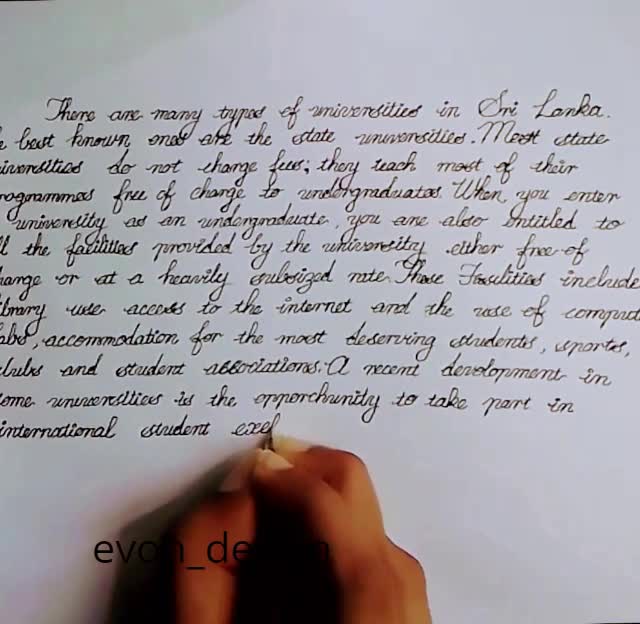 There are many types of universities in Sri Lanka.
e best known ones are the state universities. Most state
iversities do not charge fees; they teach most of their
rogrammes free of charge to undergraduates. When you enter
university as an undergraduate, you are also entitled to
ll the facilities provided by the university either free of
harge or at a heavily subsized rate. These Fascilities include
ibrary use access to the internet and the use of comput
labs, accommodation for the most deserving students, sports,
clubs and student associations. A recent development in
some universities is the opporchunity to take part in
international student exe
evon_de